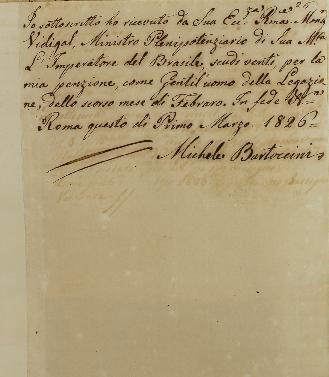 Io sottoscritto ho ricevuto da Sua Ecc.za Rma Mons.
Vidigal, Ministro Plenipotenziario di Sua Mtà
L'Imperatore del Brasile, scudi venti, per la
mia penzione, come Gentil'uomo della Legazio
ne, dello scorso mese di Febraro. In fede
Roma questo dì Primo Marzo 1826
Michele Bartoccini